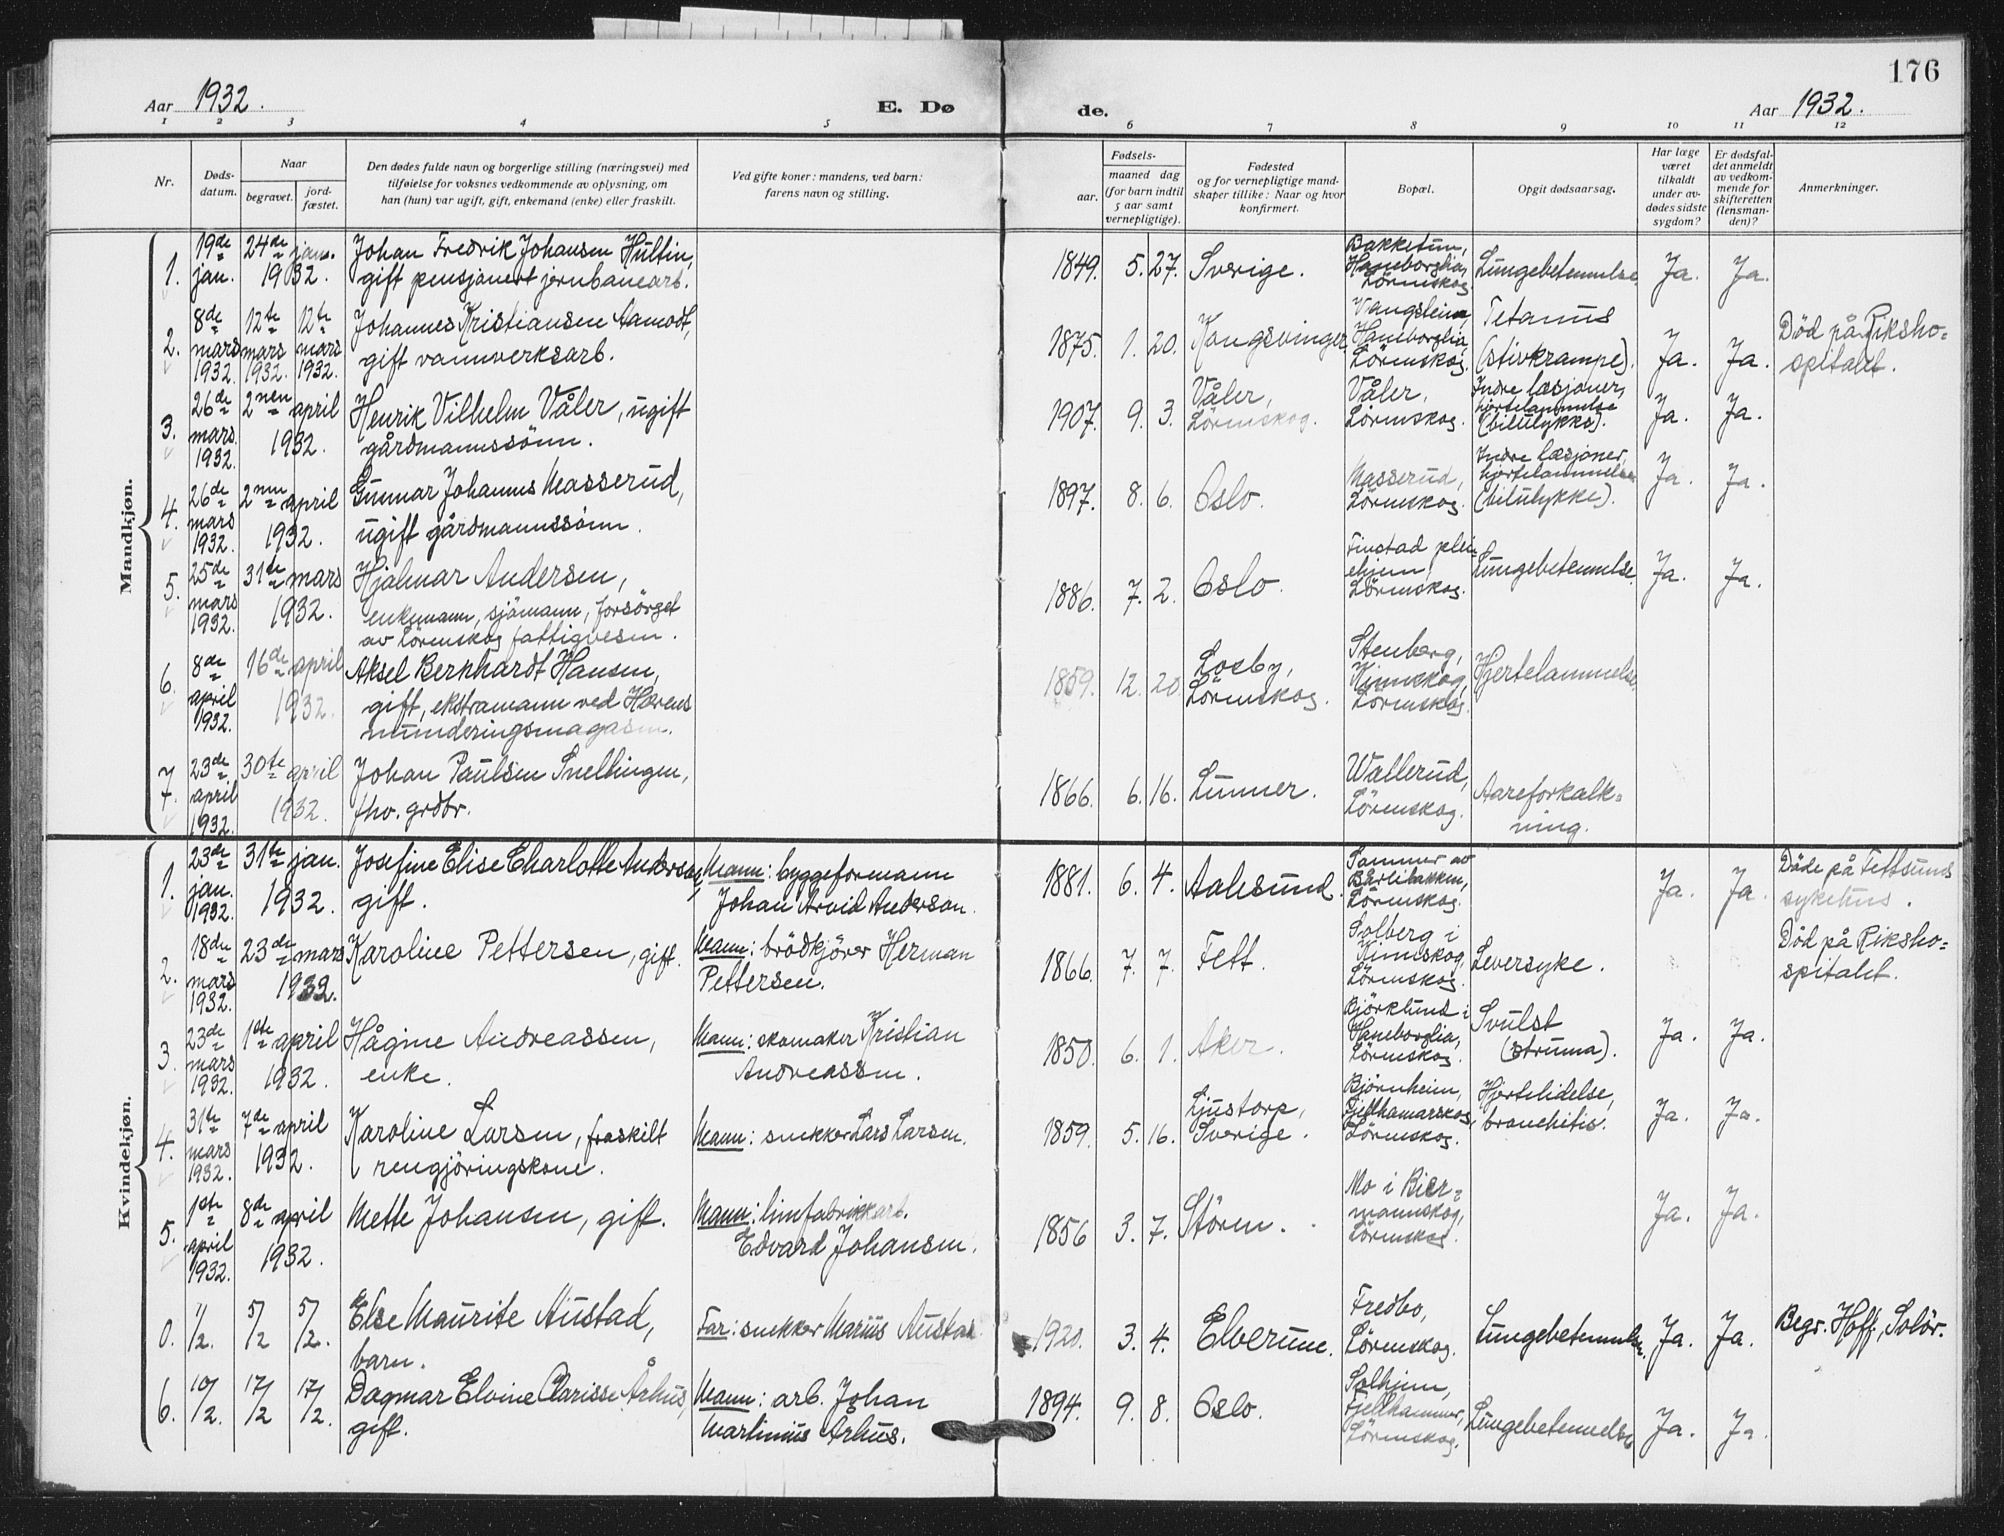 176
Aar 1932.
E. Dø
de.
Aar 1932.
1 2 3 4 5 6 7 8 9 10 11 12
Nr.
Døds-
datum.
Naar
begravet.
jord-
fæstet.
Den dødes fulde navn og borgerlige stilling (næringsvei) med
tilføielse for voksnes vedkommende av oplysning, om
han (hun) var ugift, gift, enkemand (enke) eller fraskilt.
Ved gifte koner: mandens, ved barn:
farens navn og stilling.
Fødsels-
aar.
maaned dag
(for barn indtil
5 aar samt
vernepligtige).
Fødested
og for vernepligtige mand-
skaper tillike: Naar og hvor
konfirmert.
Bopæl.
Opgit dødsaarsag.
Har læge
været
tilkaldt
under av-
dødes sidste
sygdom?
Er dødsfal-
det anmeldt
av vedkom-
mende for
skifteretten
(lensman-
den)?
Anmerkninger.
Mandkjøn.
1.
19de
jan.
24de jan.
1932.
Johan Fredrik Johansen Hultin,
gift pensjonert jernbanearb.
1849. 5. 27. Sverige.
Bakketun,
Haneborglia,
Lörenskog
Lungebetennelse
Ja. Ja.
2.
8de
mars
1932.
12te
mars
1932.
12te
mars
1932.
Johannes Kristiansen Aamodt,
gift vannverksarb.
1875. 1. 20. Kongsvinger
Haneborglia,
Lörenskog.
Tetanus
(stivkrampe).
Ja. Ja.
Död på Riksho=
spitalet.
3.
26de
mars.
1932.
2nen april
1932.
Henrik Vilhelm Våler, ugift
gårdmannssönn.
1907. 9. 3.
Våler,
Lörenskog.
Våler,
Lörenskog.
Indre læsjoner,
hjertelammelse
(bilulykke).
Ja. Ja.
4.
26de
mars
1932.
2nen april
1932.
Gunnar Johannes Masserud,
ugift gårdmannssönn.
1897. 8. 6. Oslo.
Masserud,
Lörenskog.
Indre læsjoner,
hjertelammelse
(bilulykke).
Ja. Ja.
5.
25de
mars
1932.
31te mars
1932.
Hjalmar Andersen,
enkemann, sjömann, forsörget
av Lörenskog fattigvesen.
1886. 7. 2. Oslo.
Finstad plei-
ehjem,
Lörenskog.
Lungebetennelse.
Ja. Ja.
6.
8de
april
1932.
16de april
1932.
Aksel Bernhardt Hansen,
gift, ekstramann ved Hærens
munderingsmagasin.
1859. 12. 20.
Losby,
Lörenskog.
Stenberg,
Kinnskog,
Lörenskog.
Hjertelammelse.
7.
23de
april
1932.
30te april
1932.
Johan Paulsen Snellingen,
fhv. grdbr.
1866. 6. 16. Lunner.
Wallerud,
Lörenskog.
Aareforkalk=
ning.
Kvindekjøn.
1.
23de
jan.
1932.
31te jan.
1932.
Josefine Elise Charlotte Anderson,
gift.
Mann: byggeformann
Johan Arvid Anderson.
1881. 6. 4. Aalesund.
Sammer av
Bårlibakken,
Lörenskog.
Ja. Ja.
Döde på Fettsund
sykehus.
2.
18de
mars
1932.
23de mars
1932.
Karoline Pettersen, gift.
Mann: brödkjörer Herman
Pettersen.
1866. 7. 7. Fett.
Solberg i
Kinnskog,
Lörenskog.
Leversyke.
Död på Riksho=
spitalet.
3.
23de
mars
1932.
1ste april
1932.
Hågine Andreassen,
enke.
Mann: skomaker Kristian
Andreassen.
1850. 6. 1. Aker.
Björklund i
Haneborglia,
Lörenskog.
Svulst
(struma).
Ja. Ja.
4.
31te
mars
1932.
7de april
1932.
Karoline Larsen, fraskilt
rengjöringskone.
Mann: snekker Lars Larsen.
1859. 5. 16.
Ljustorp,
Sverige.
Björnheim,
Fjellhamarskog,
Lörenskog.
Hjertelidelse,
bronchitis.
Ja. Ja.
5.
1ste
april
1932.
8de april
1932.
Mette Johansen, gift.
Mann: limfabrikkarb.
Edvard Johansen.
1856 3. 7. Stören.
Mo i Bier=
mannskog,
Lörenskog.
Ja. Ja.
0.
1/2.
5/2
5/2.
Else Maurite Austad,
barn.
Far: snekker Marius Austad.
1920. 3. 4. Elverum.
Fredbo,
Lörenskog.
Lungebetennelse.
Ja. Ja.
Begr. Hoff, Solör.
6.
10/2.
17/2
17/2.
Dagmar Elvine Clarisse Århus,
gift.
Mann: arb. Johan
Martinius Århus.
1894. 9. 8. Oslo.
Solheim,
Fjellhammer,
Lörenskog.
Lungebetennelse
Ja. Ja.